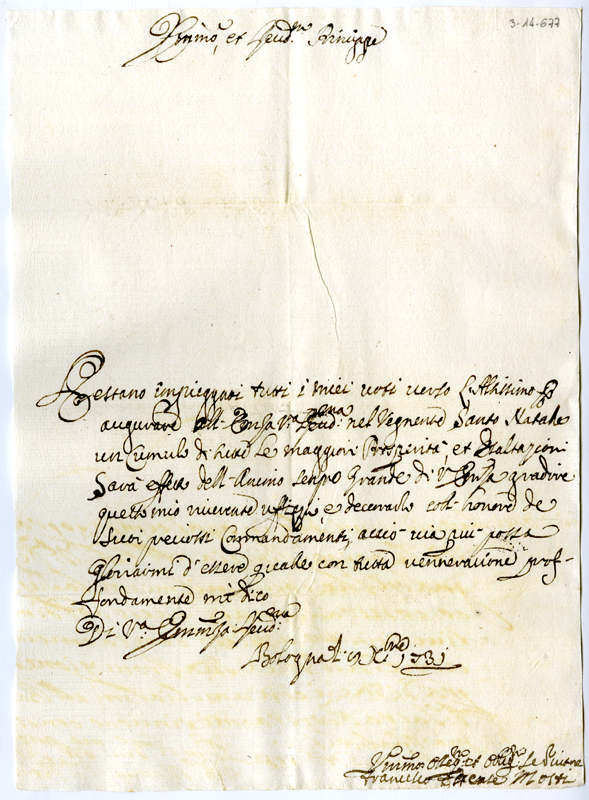 3-14-677
Emmo, et Revd.mo Principe
Restano impieggati tutti i miei voti verso l'Altissimo p
augurare all' Emza Va Revd.ma nel Vegnente Santo Natale
un Cumulo di tutte le maggiori Prosperità, et Esaltazioni
Sarà effetto dell' Animo sempre Grande di V Emza gradire
questo mio riverente uffizio, e decorarlo coll' honore de
Suoi preciosi Commandamenti, acciò via più possa
Gloriarmi d'essere quale con tutta venneratione prof-
fondamente mi dico
Di Va Emmza Revd.ma
Bologna li Xbre 1731
Ummo et Obligmo Servitore
Francesco Mosti